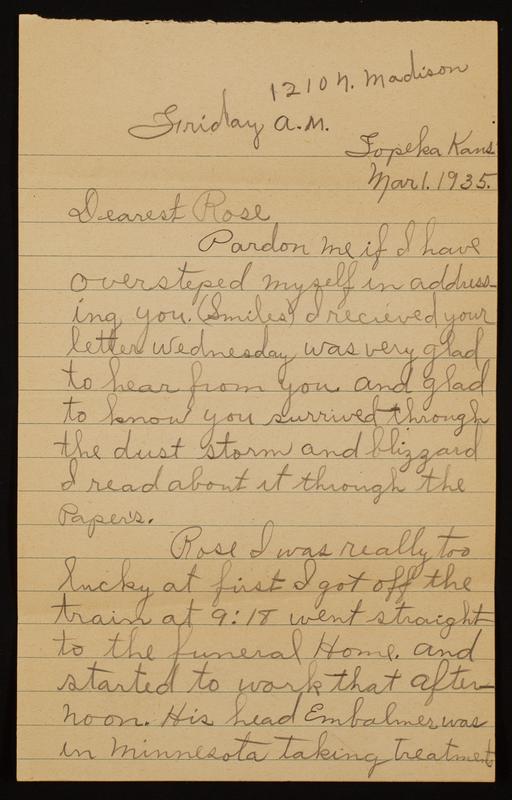 1210 N. Madison
Friday A.M.
Topeka Kans
Mar 1. 1935.
Dearest Rose
Pardon me if I have
oversteped myself in address-
ing you. (Smiles) I recieved your
letter Wednesday was very glad
to hear from you and glad
to know you survived through
the dust storm and blizzard
I read about it through the
Paper's.
Rose I was really too
lucky at first I got off the
train at 9:18 went straight
to the funeral Home. and
started to work that after-
noon. His head Embalmer was
in Minnesota taking treatment